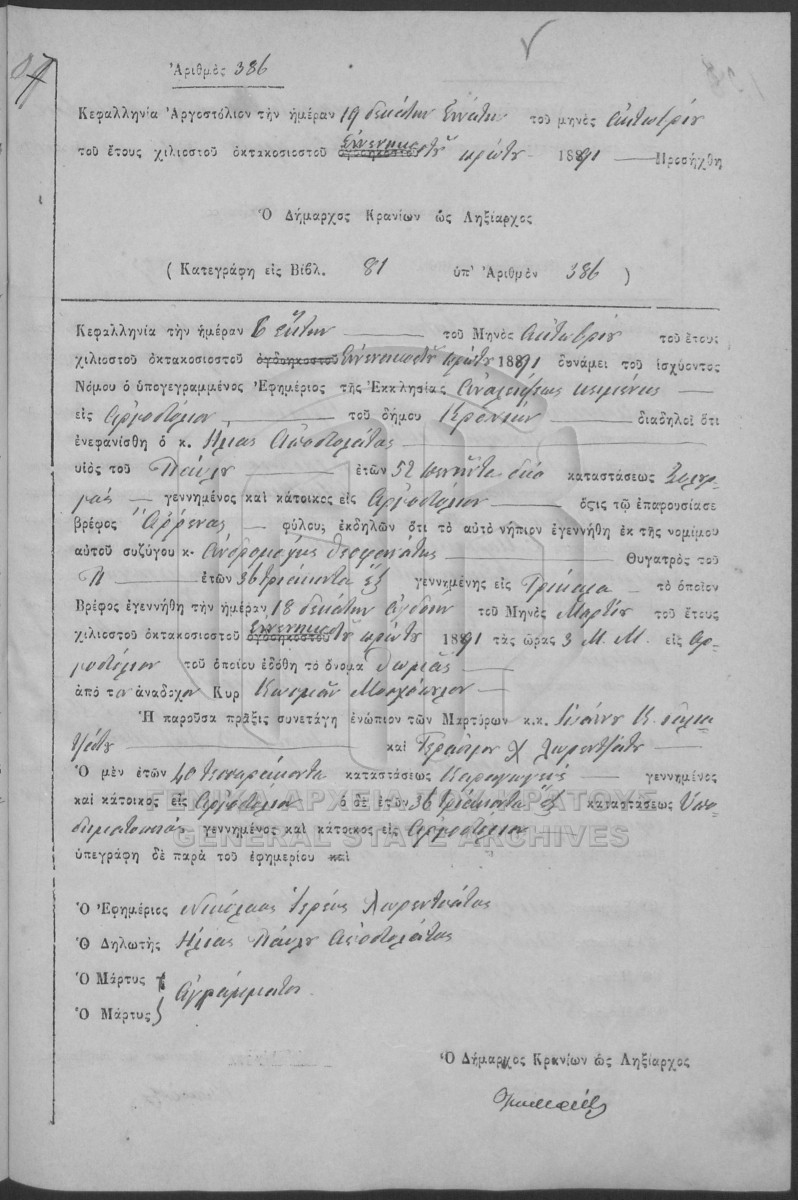 Ἀριθμὸς 386
Κεφαλληνία Ἀργοστόλιον τὴν ἡμέραν 19 δεκάτην ἐννάτην τοῦ μηνὸς Ὀκτωβρίου
τοῦ ἔτους χιλιοστοῦ ὀκτακοσιοστοῦ ὀγδοηκοστοῦ ἐννενηκοστοῦ πρώτου 1891 Προσήχθη
Ὁ Δήμαρχος Κρανίων ὡς Ληξίαρχος
(Κατεγράφη εἰς Βιβλ. 81 ὑπ' Ἀριθμὸν 386)
Κεφαλληνία τὴν ἡμέραν 6 ἕκτην τοῦ Μηνὸς Ὀκτωβρίου τοῦ ἔτους
χιλιοστοῦ ὀκτακοσιοστοῦ ὀγδοηκοστοῦ ἐννενηκοστοῦ πρώτου 1891 δυνάμει τοῦ ἰσχύοντος
Νόμου ὁ ὑπογεγραμμένος Ἐφημέριος τῆς Ἐκκλησίας Ἀναλήψεως κειμένης
εἰς Ἀργοστόλιον τοῦ δήμου Κρανίων διαδηλοῖ ὅτι
ἐνεφανίσθη ὁ κ. Ηλίας Αποστολάτος
υἱὸς τοῦ Παύλου ἐτῶν 52 πενήντα δύο καταστάσεως
γεννημένος καὶ κάτοικος εἰς Ἀργοστόλιον ὅςτις τῷ ἐπαρουσίασε
βρέφος Ἄρρενος φύλου, ἐκδηλῶν ὅτι τὸ αὐτὸ νήπιον ἐγεννήθη ἐκ τῆς νομίμου
αὐτοῦ συζύγου κ. Ἀνδρομάχης Θεοφανάτης Θυγατρὸς τοῦ
Π ἐτῶν 36 τριάκοντα ἓξ γεννημένης εἰς τὸ ὁποῖον
Βρέφος ἐγεννήθη τὴν ἡμέραν 18 δεκάτην ὀγδόην τοῦ Μηνὸς Μαρτίου τοῦ ἔτους
χιλιοστοῦ ὀκτακοσιοστοῦ ὀγδοηκοστοῦ ἐννενηκοστοῦ πρώτου 1891 τὰς ὥρας 3 Μ. Μ. εἰς Ἀρ-
γοστόλιον τοῦ οποίου ἐδόθη τὸ ὄνομα Θωμᾶς
ἀπὸ τον ἀνάδοχον Κυρ
Ἡ παροῦσα πρᾶξις συνετάγη ἐνώπιον τῶν Μαρτύρων κ.κ. Ἰωάννου Κ.
καὶ Γεράσιμου Χ Λωρεντζάτου
Ὁ μὲν ἐτῶν 40 τεσσαράκοντα καταστάσεως Καραγωγεύς γεννημένος
καὶ κάτοικος εἰς Ἀργοστόλιον ὁ δὲ ἐτῶν 36 τριάκοντα ἓξ καταστάσεως Ὑπο-
δηματοποιός γεννημένος καὶ κάτοικος εἰς Ἀργοστόλιον
ὑπεγράφη δὲ παρὰ τοῦ ἐφημερίου καὶ
Ὁ Ἐφημέριος Νικόλαος Ἱερεύς Λωρεντσάτος
Ὁ Δηλωτὴς Ηλίας Παύλου Αποστολάτος
Ὁ Μάρτυς
Ὁ Μάρτυς Ἀγράμματοι
Ὁ Δήμαρχος Κρανίων ὡς Ληξίαρχος
ΓΕΝΙΚΑ ΑΡΧΕΙΑ ΤΟΥ ΚΡΑΤΟΥΣ
GENERAL STATE ARCHIVES